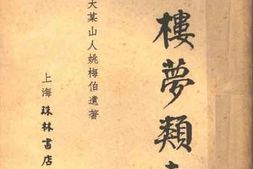 樓夢類
大某山人姚梅伯遺著
上海 珠林書店